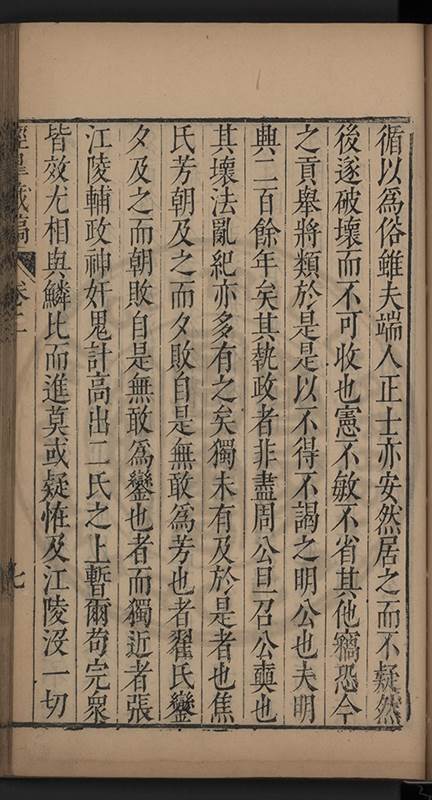 循以爲俗雖夫端人正士亦安然居之而不疑然
後遂破壞而不可收也憲不敏不省其他竊恐今
之貢舉將類於是是以不得不謁之明公也夫明
興二百餘年矣其執政者非盡周公旦召公奭也
其壞法亂紀亦多有之矣獨未有及於是者也焦
氏芳朝及之而夕敗自是無敢爲芳也者翟氏鑾
夕及之而朝敗自是無敢爲鑾也者而獨近者張
江陵輔政神奸鬼計高出二氏之上暫爾苟完衆
皆效尤相與鱗比而進莫或疑怪及江陵沒一切
涇臯藏稿
卷二
七